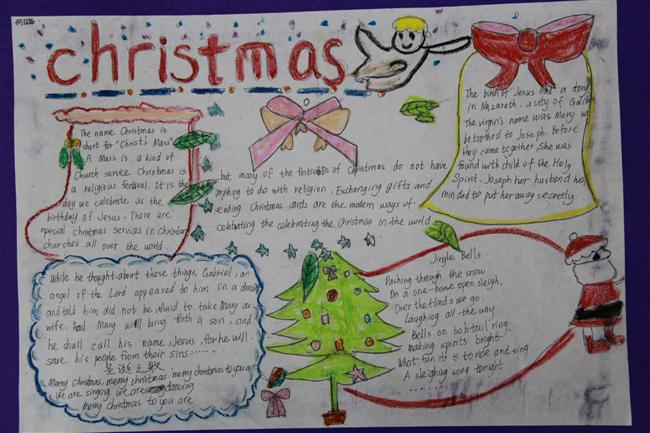 christmas
The name Christmas is
short for "Christ's Mass".
A Mass is a kind of
Church service. Christmas is
a religious festival. It is the
day we celebrate us the
birthday of Jesus. There are
special christmas services in Christian
churches all over the world.
but many of the festivities of Christmas do not have
anything to do with religion. Exchanging gifts and
sending Christmas cards are the modern ways of
celebrating the celebrating the Christmas in the world
The birth of Jesus had a
in Nazareth. a city of
The virgin's name was Mary
betrothed to Joseph. Before
they came together, she was
found with child of the Holy
Spirit. Joseph her husband
minded to put her away secretly
While he thought about these things, Gabriel, an
angel of the Lord appeared to him in a dream
and told him did not be afraid to take Mary as
wife. And Mary will bring forth a son, and
he shall call his name Jesus, for he will
save his people from their sins......
圣诞之歌
Merry Christmas, merry christmas, merry christmas to you are
we are singing, we are dancing
merry christmas to you are
Jingle Bells
Dashing through the snow
In a one-horse open sleigh,
Over the fields we go
laughing all the way.
Bells on bobtail ring,
making spirits bright
What fun it is to ride and sing
A sleighing song tonight
........